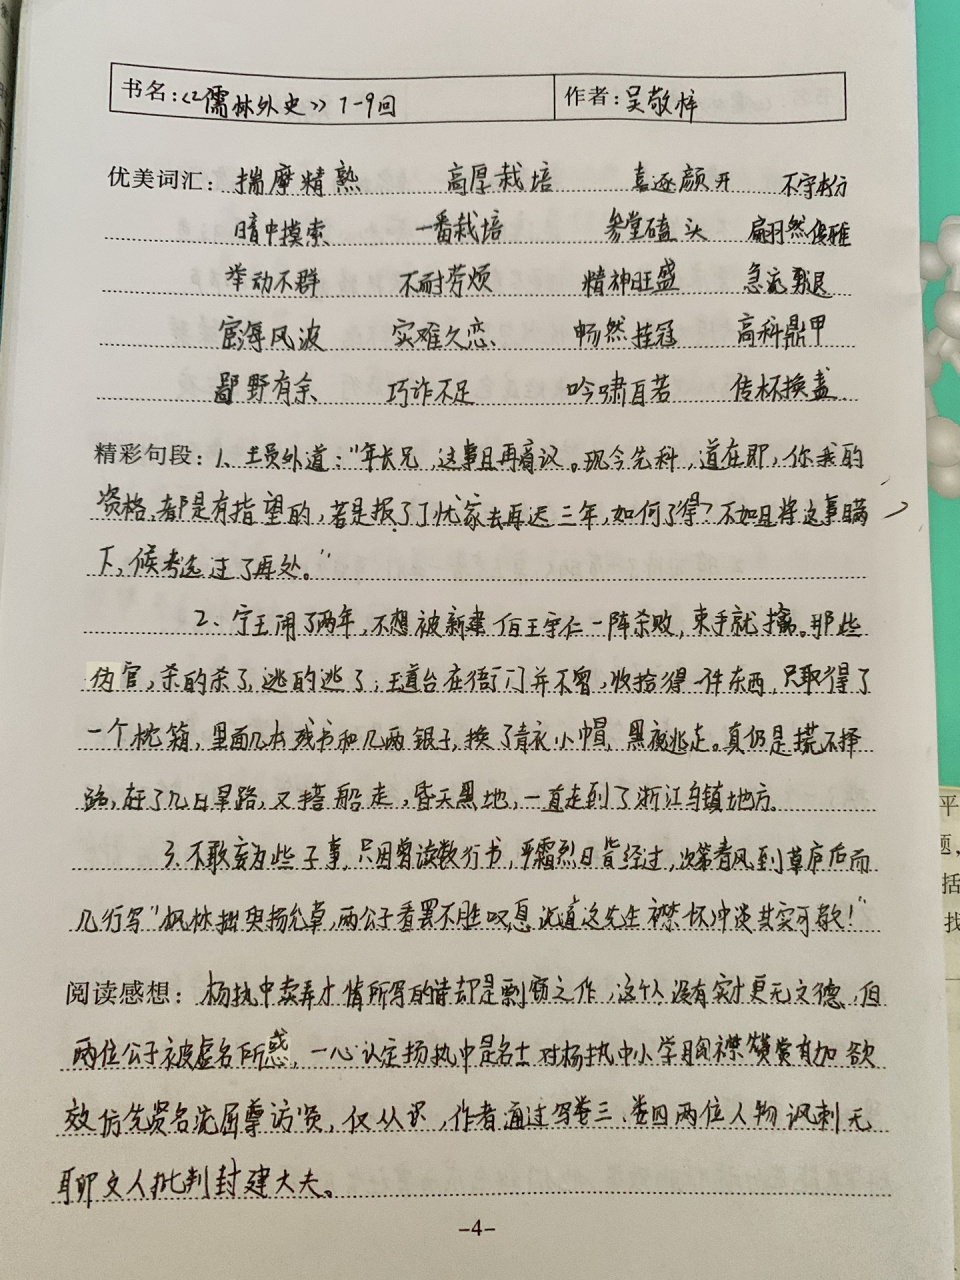 书名:《儒林外史》7-9回 作者:吴敬梓
优美词汇: 揣摩精熟 高厚栽培 喜逐颜开 不守本分
暗中摸索 一番栽培 参堂磕头 翩然俊雅
举动不群 不耐劳烦 精神旺盛 急流勇退
宦海风波 实难久恋 畅然挂冠 高科鼎甲
鄙野有余 巧诈不足 吟啸自若 传杯换盏
精彩句段: 1、王员外道:"年长兄,这事且再商议。现今先科,道在即,你我的
资格,都是有指望的,若是报了丁忧家去再迟三年,如何了得?不如且将这事瞒
下,候考选过了再处。"
2、宁王闹了两年,不想被新建伯王守仁一阵杀败,束手就擒。那些
伪官,杀的杀了,逃的逃了;王道台在衙门并不曾,收拾得一件东西,只取得了
一个枕箱,里面几本残书和几两银子,换了青衣小帽,黑夜逃走。真仍是慌不择
路,赶了几日旱路,又搭船走,昏天黑地,一直走到了浙江乌镇地方。
3、不敢妄为些子事,只因曾读数行书,严霜烈日皆经过,次第春风到草庐后面
几行写"枫林拙叟扬允草,两公子看罢不胜叹息说道这先生襟怀冲淡其实可敬!"
阅读感想: 杨执中卖弄才情所写的诗却是剽窃之作,这个人没有实才更无文德,但
两位公子被虚名所惑,一心认定扬执中是名士对杨执中小学胸襟赞赏有加欲
效仿先贤名流屈尊访贤,仅从识,作者通过写娄三、娄四两位人物讽刺无
聊文人批判封建大夫。
-4-
平
题,
括
找